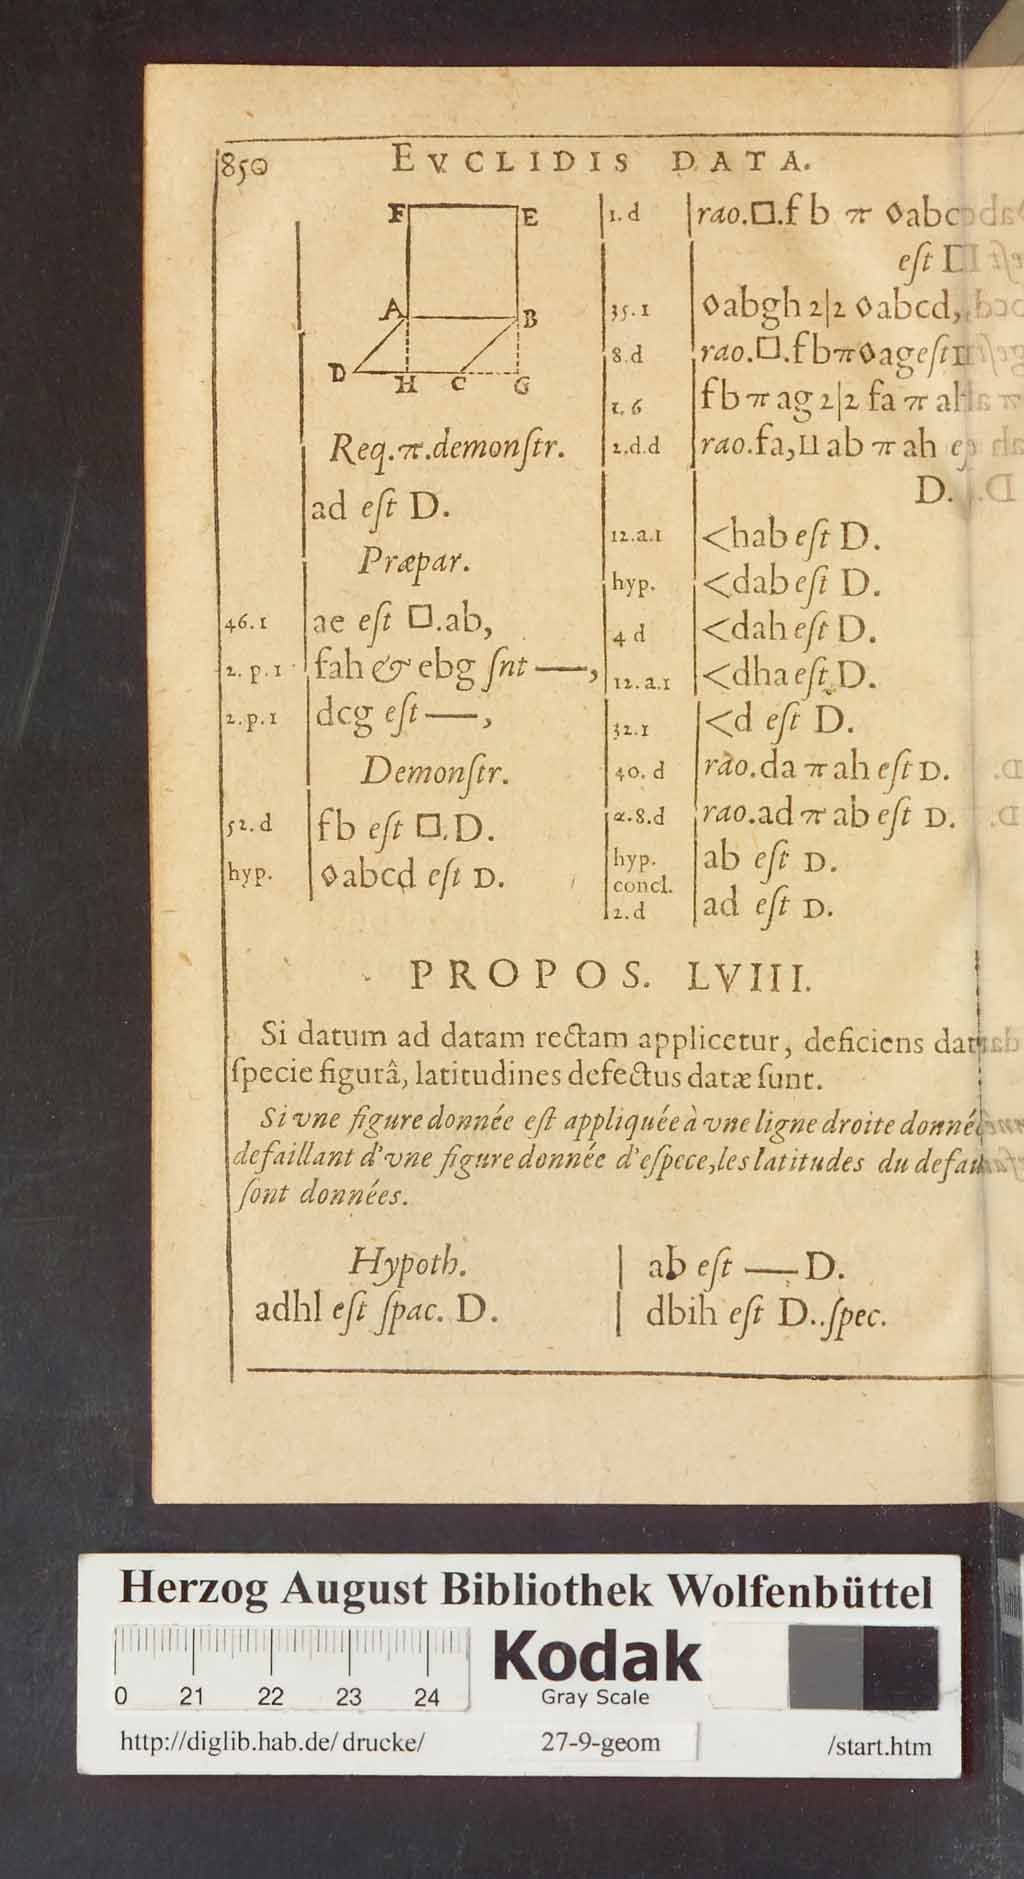 850
EVCLIDIS DATA.
F E
A B
D H C G
Req.π.demonſtr.
ad eſt D.
Præpar.
46.1 ae eſt □.ab,
2. p. 1 fah & ebg ſnt —,
2. p. 1 dcg eſt —,
Demonſtr.
52. d fb eſt □. D.
hyp. ◊abcd eſt D.
1. d rao.□.fb π ◊abcd
eſt D
35. 1 ◊abgh 2|2 ◊abcd,
8. d rao.□.fb π ◊ag eſt D
1. 6 fb π ag 2|2 fa π ah
2.d.d rao.fa, ⊔ ab π ah
D.
12.a.1 <hab eſt D.
hyp. <dab eſt D.
4 d <dah eſt D.
12.a.1 <dha eſt D.
32.1 <d eſt D.
40. d rao.da π ah eſt D.
α.8.d rao.ad π ab eſt D.
hyp. ab eſt D.
concl.
2. d ad eſt D.
PROPOS. LVIII.
Si datum ad datam rectam applicetur, deficiens
ſpecie figurâ, latitudines defectus datæ ſunt.
Si vne figure donnée eſt appliquée à vne ligne droite donnée
defaillant d'vne figure donnée d'eſpece, les latitudes du
ſont données.
Hypoth.
adhl eſt ſpac. D.
ab eſt — D.
dbih eſt D..ſpec.
Herzog August Bibliothek Wolfenbüttel
0 21 22 23 24
Kodak
Gray Scale
http://diglib.hab.de/drucke/ 27-9-geom /start.htm